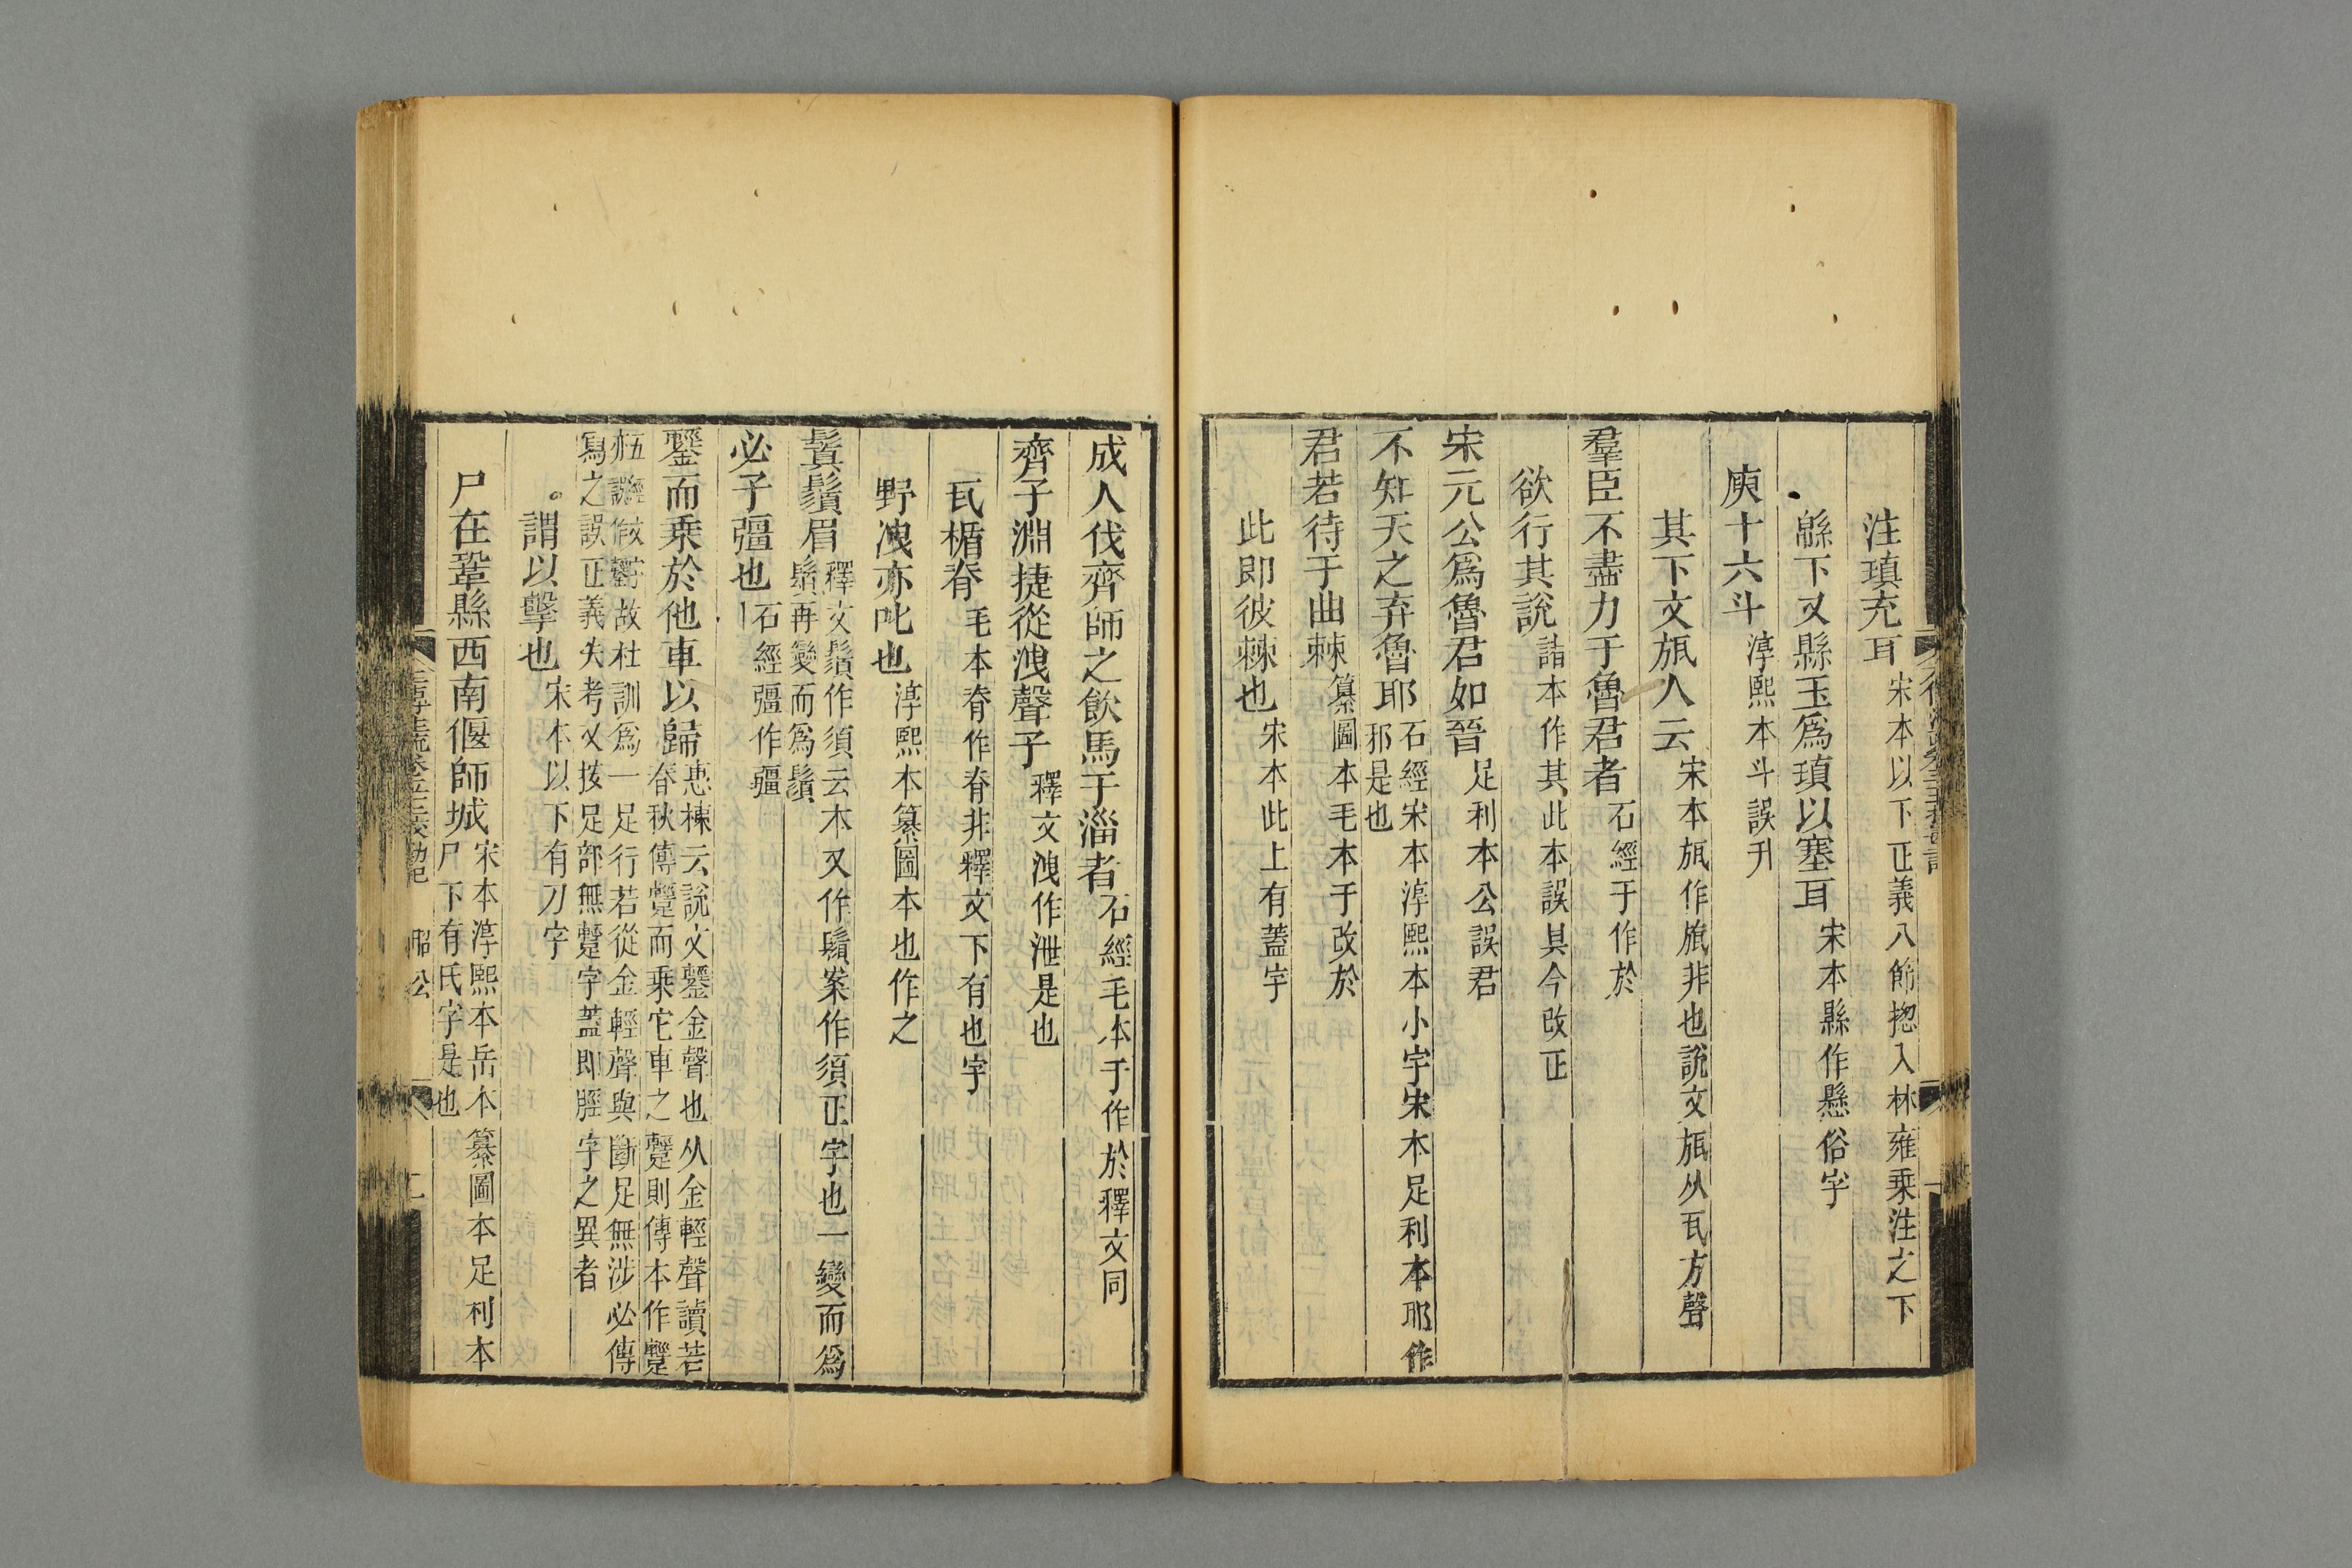 注瑱充耳宋本以下正義八節揔入林雍乗注之下
緜下又縣玉爲瑱以塞耳宋本縣作懸俗字
庾十六斗淳熙本斗誤升
其下文旊人云宋本旊作旊非也說文旊从瓦方聲
羣臣不盡力于魯君者石經于作於
欲行其說諸本作其此本誤具今改正
宋元公爲魯君如晉足利本公誤君
不知天之弃魯耶石經宋本淳熙本小字宋本足利本耶作
邪是也
君若待于曲棘纂圖本毛本于改於
此即彼棘也宋本此上有蓋字
成人伐齊師之飲馬于淄者石經毛本于作於釋文同
齊子淵捷從洩聲子釋文洩作泄是也
瓦楯脊毛本脊作脊非釋文下有也字
野洩亦叱也淳熙本纂圖本也作之
鬒鬚眉釋文鬚作須云本又作鬚案作須正字也一變而爲
鬚再變而爲鬚
必子彊也石經彊作疆
鑋而乗於他車以歸惠棟云說文鑋金聲也从金輕聲讀若
春秋傳躗而乗它車之躗則傳本作躗
五經假鑋字故杜訓爲一足行若從金輕聲與斷足無涉必傳
寫之誤正義失考又按足部無躗字蓋即脛字之異者
謂以擊也宋本以下有刀字
尸在鞏縣西南偃師城宋本淳熙本岳本纂圖本足利本
尸下有氏字是也
昭公